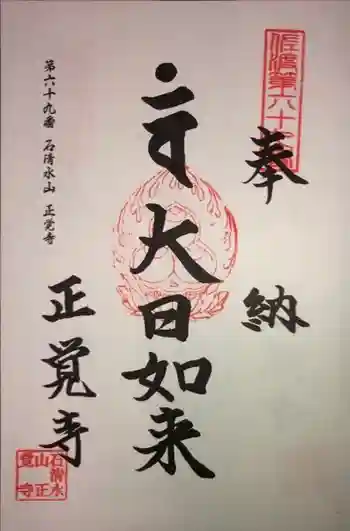 奉納
佐渡第六十九番
大日如来
第六十九番 石清水山 正覚寺
正覚寺
石清水
山正
覚寺